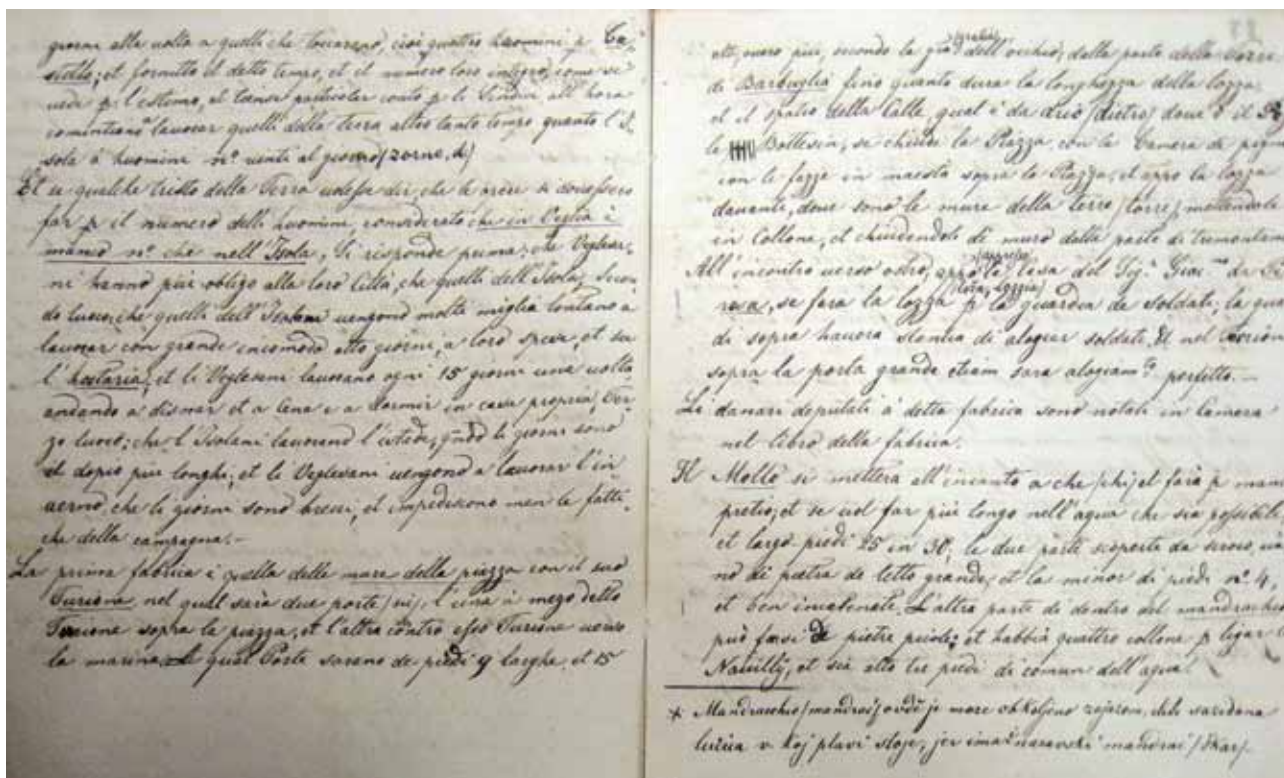 giorni alla uolta a quelli che toccarano, cioè quattro huomini p Ca,
stello; et fornitto il detto tempo, et il numero loro integro, come si
uedi p l'estemo, et tansa particolar conto p li all'hora
comintiano lauorar quelli della terra altro tanto tempo quanto l'I,
sola à huomini no. uinti al giorno (zorno, di)
Et se qualche tristo della Terra uolesse dir, che le opere si douessero
far p il numero delli huomini, considerato che in Veglia è
manco no. che nell'Isola, Si risponde prima: che Vegliesa,
ni hanno più obligo alla loro Città, che quelli dell'Isola, Secon,
do luoco, che quelli dell'Isola uengono molte miglia lontano a
lauorar con grande incomodo otto giorni, a loro spese, et su
l'hostaria, et li Veglesani lauorano ogni 15 giorni una uolta
andando a disnar et a Cena e a dormir in casa propria, Ter,
zo luoco: che l'Isolani lauorano l'istade, qñdo li giorni sono
il dopio più longhi, et li Veglesani uengono a lauorar l'in
uerno, che li giorni sono breui, et impediscono men le fatti,
che della campagna.-
La prima fabrica è quella delle mure della piazza con il suo
Turione nel qual sarà due porte (ni), l'una à mezo detto
Torione sopra la piazza, et l'altra contro esso Turione uerso
la marina. Le qual Porte sarano de piedi 9 larghe, et 15
alte, ouero più, secondo la gra dell'occhio, dalla parte della torre
(gratia)
di Barbuglia fino quanto dura la longhezza della lozza,
et il spatio della Calle, qual è da drio (dietro) doue è il
le Bottesin, se chiude la Piazza con la Camera de pegni
con le fazze in maesta sopra la Piazza, et apre la lozza
dauanti, doue sono le mura della terra (torre), mettendole
in Collona, et chiudendole di muro dalla parte di tramontana
All'incontro uerso ostro, appo la Casa del Sig.r Giac.mo de
(appresso)
, se fara la lozza p la guardia de soldati, la qual
(loza, loggia)
di sopra hauera stantia di alogiar soldati, et nel torrion
sopra la porta grande etiam sara alogiam.to perfetto.-
Li danari deputati à detta fabrica sono notati in Camera
nel libro della fabrica.
Il Mollo si mettera all'incanto a che (chi) el farà p manco
pretio, et se uol far più longo nell'aqua che sia possibile
et largo piedi 25 in 30, le due parti scoperte da siroco, ua
no di pietra de letto grande, et la minor di piedi no. 4,
et ben incalcinate. L'altra parte di dentro del mandrachio
può farsi de pietre picole; et habbia quattro collone p ligar
Nauilly, et sia alto tre piedi di comun dell'aqua.
* Mandracchio (mandrać) ovdě je more obkoljeno zajazom,
lučica v koj plavi stoje, jer ima i naravski mandrać (Škar).